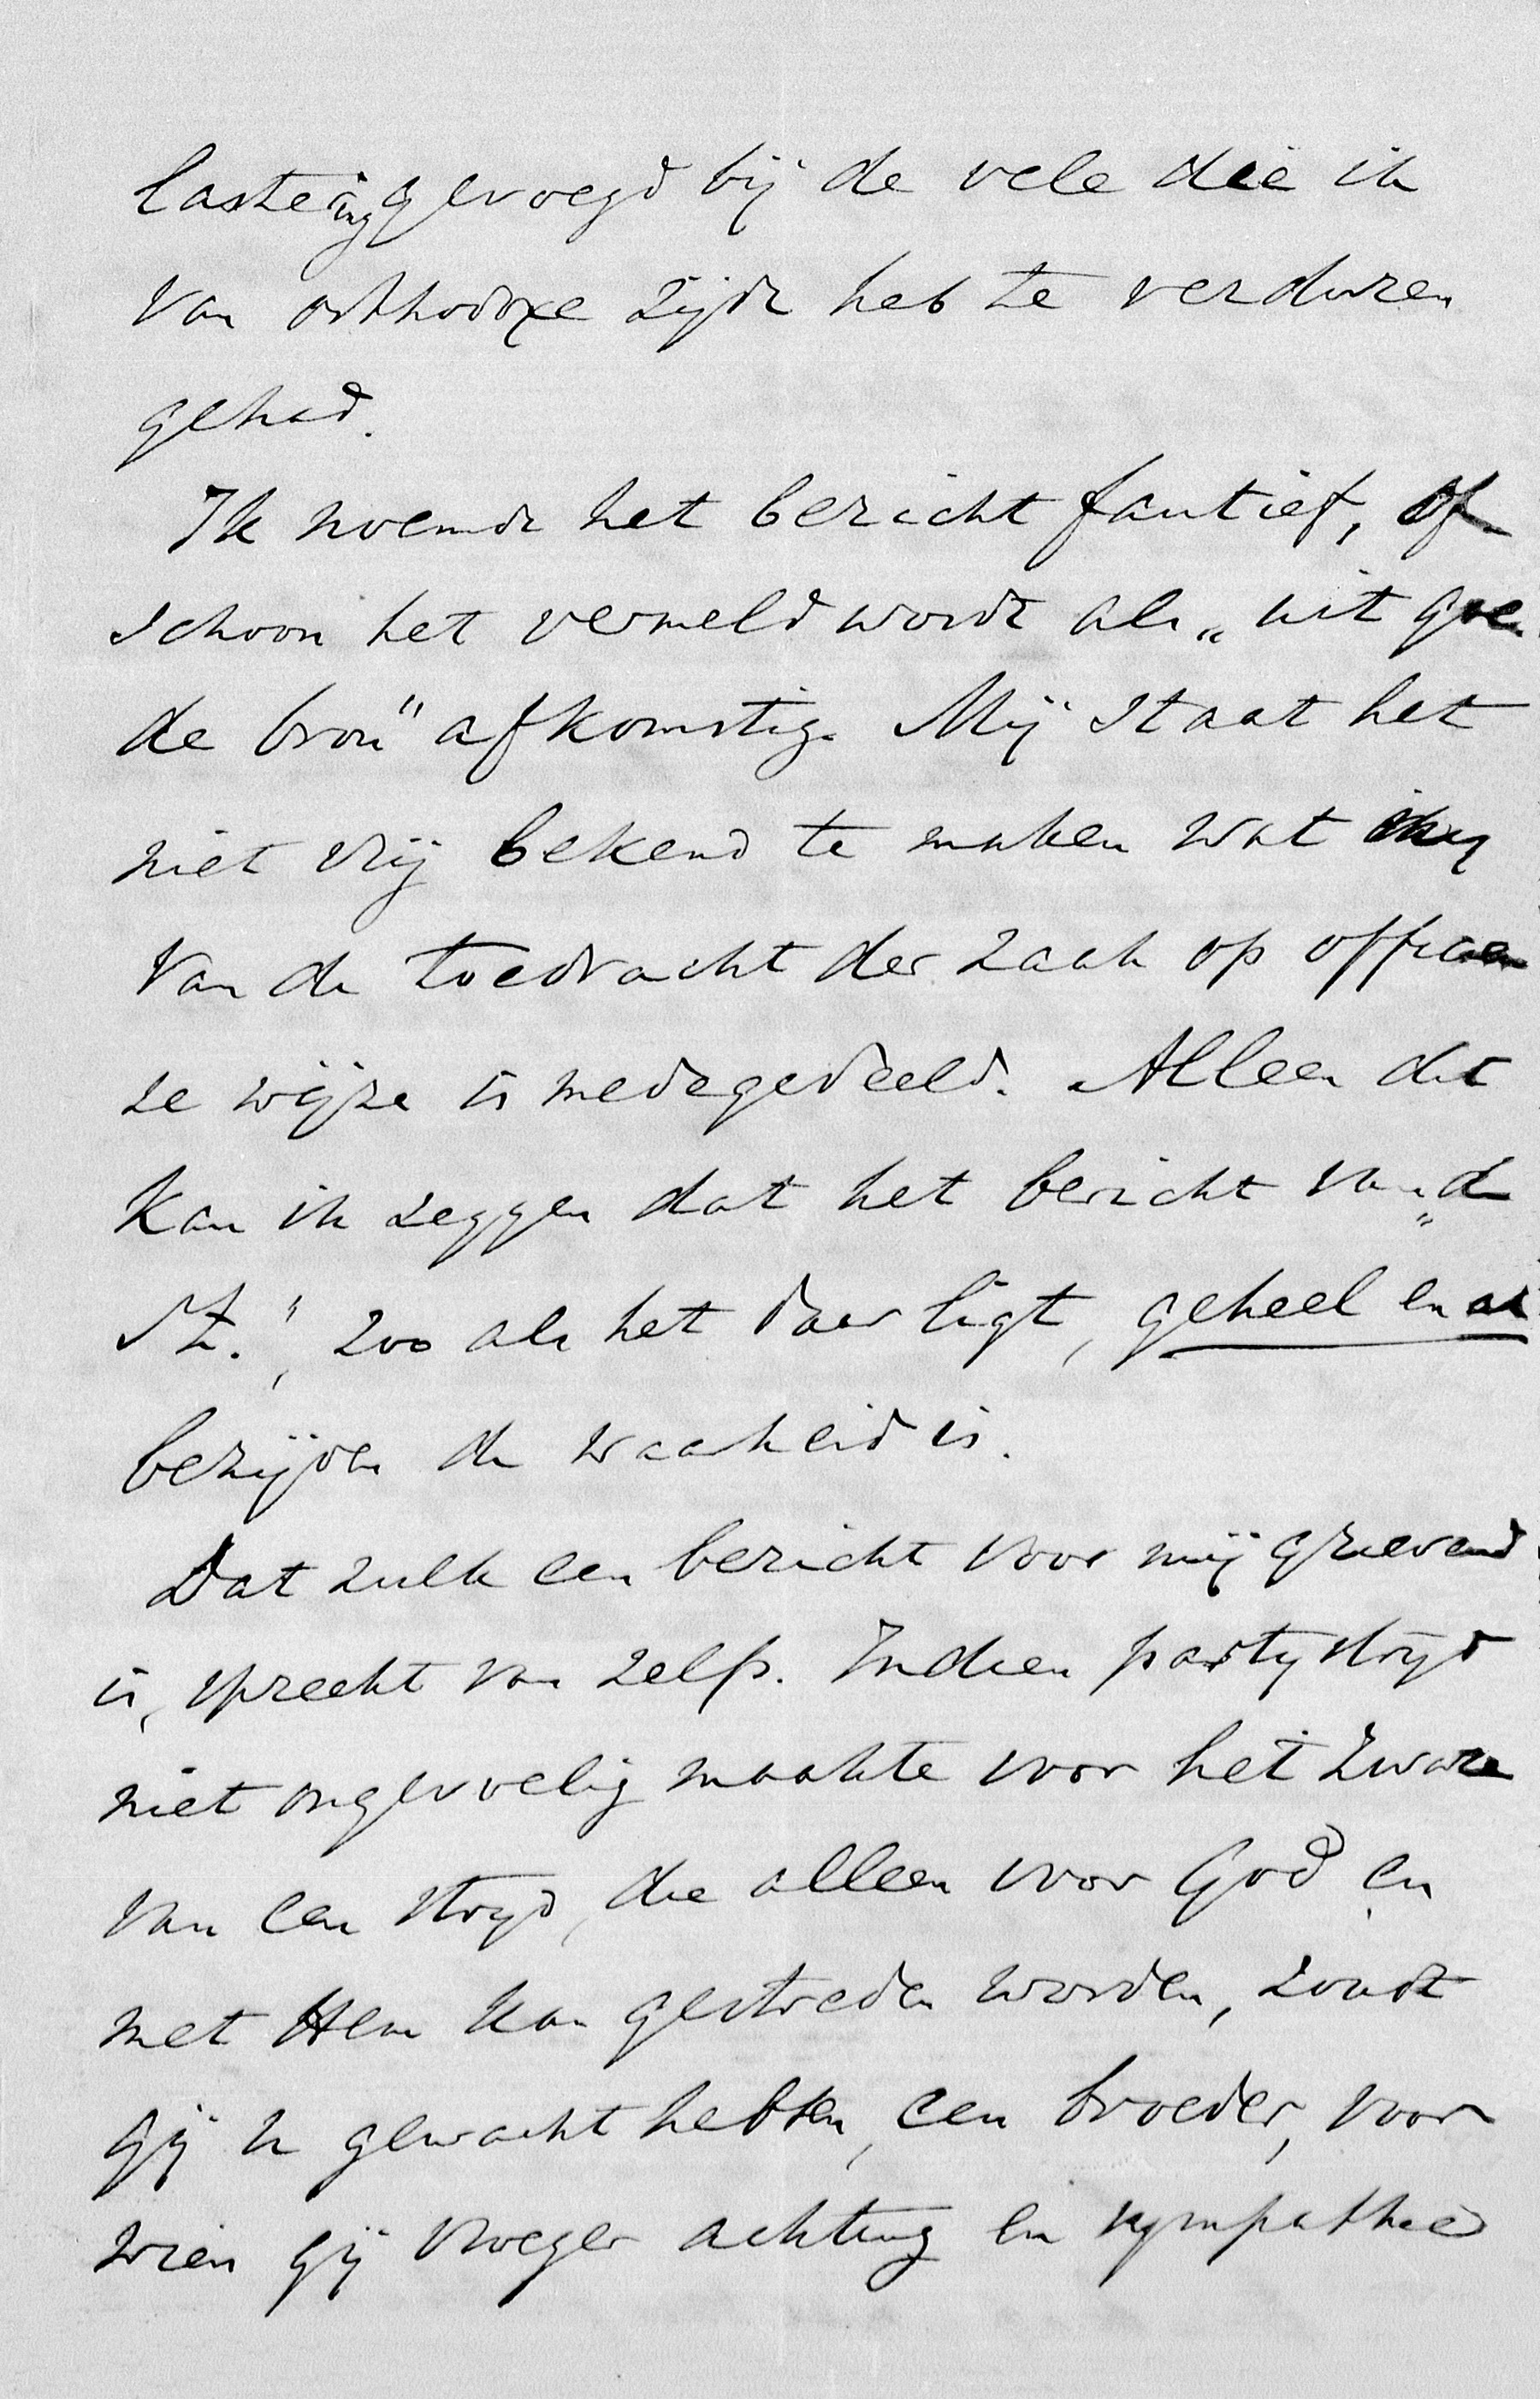 lastering gevoegd bij de vele die ik
van orthodoxe zijde heb te verduren
gehad.
Ik noemde het bericht fautief, of
schoon het vermeld wordt als „uit goe
de bron" afkomstig. Mij staat het
niet vrij bekend te maken wat
van de toedracht der zaak op officiee
ze wijze is medegedeeld. Alleen dit
kan ik zeggen dat het bericht van „de
St.", zoo als het daar ligt, geheel en al
bezijden de waarheid is.
Dat zulk een bericht voor mij grievend
is, spreekt van zelfs. Indien partystryd
niet ongevoelig maakte voor het zware
van een stryd, die alleen voor God en
met Hem kan gestreden worden, zoudt
gij u gewacht hebben, een broeder, voor
wien gij vroeger achting en sympathie